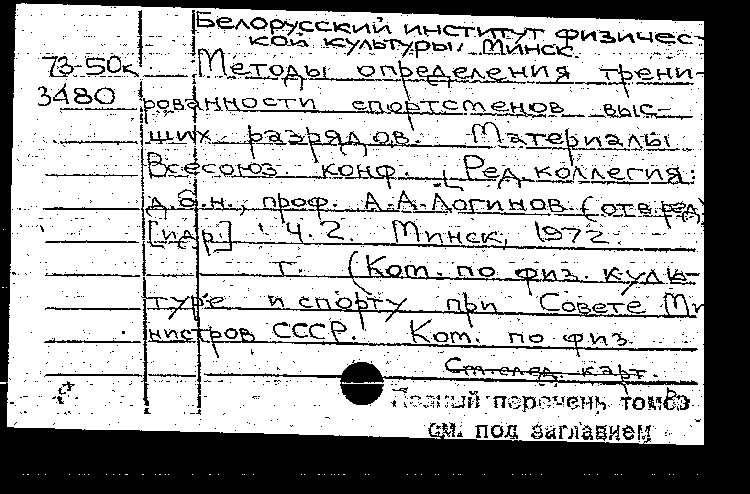 Белорусский институт физичес-
кой культуры, Минск.
73-50к Методы определения трени-
3480 рованности спортсменов выс-
ших разрядов. Материалы
Всесоюз. конф. [Ред. коллегия:
д.б.н., проф. А.А. Логинов (отв. ред)
[и др.] Ч. 2. Минск, 1972.
т. (Ком. по физ. куль-
туре и спорту при Совете Ми
нистров СССР. Ком. по физ.
См. след. карт.
Полный перечень томов
см. под заглавием